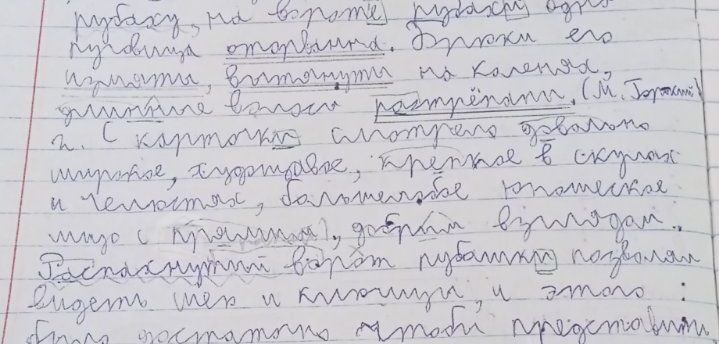 рубаху, на вороте рубахи одна
пуговица оторвана. Брюки его
измяты, вытянуты на коленях,
длинные волосы растрёпаны. (М. Горький)
2. С карточки смотрело довольно
широкое, худощавое, крепкое в скулах
и челюстях, большелобое юношеское
лицо с прямым, добрым взглядом.
Распахнутый ворот рубашки позволял
видеть шею и ключицы, и этого
было достаточно чтобы представить